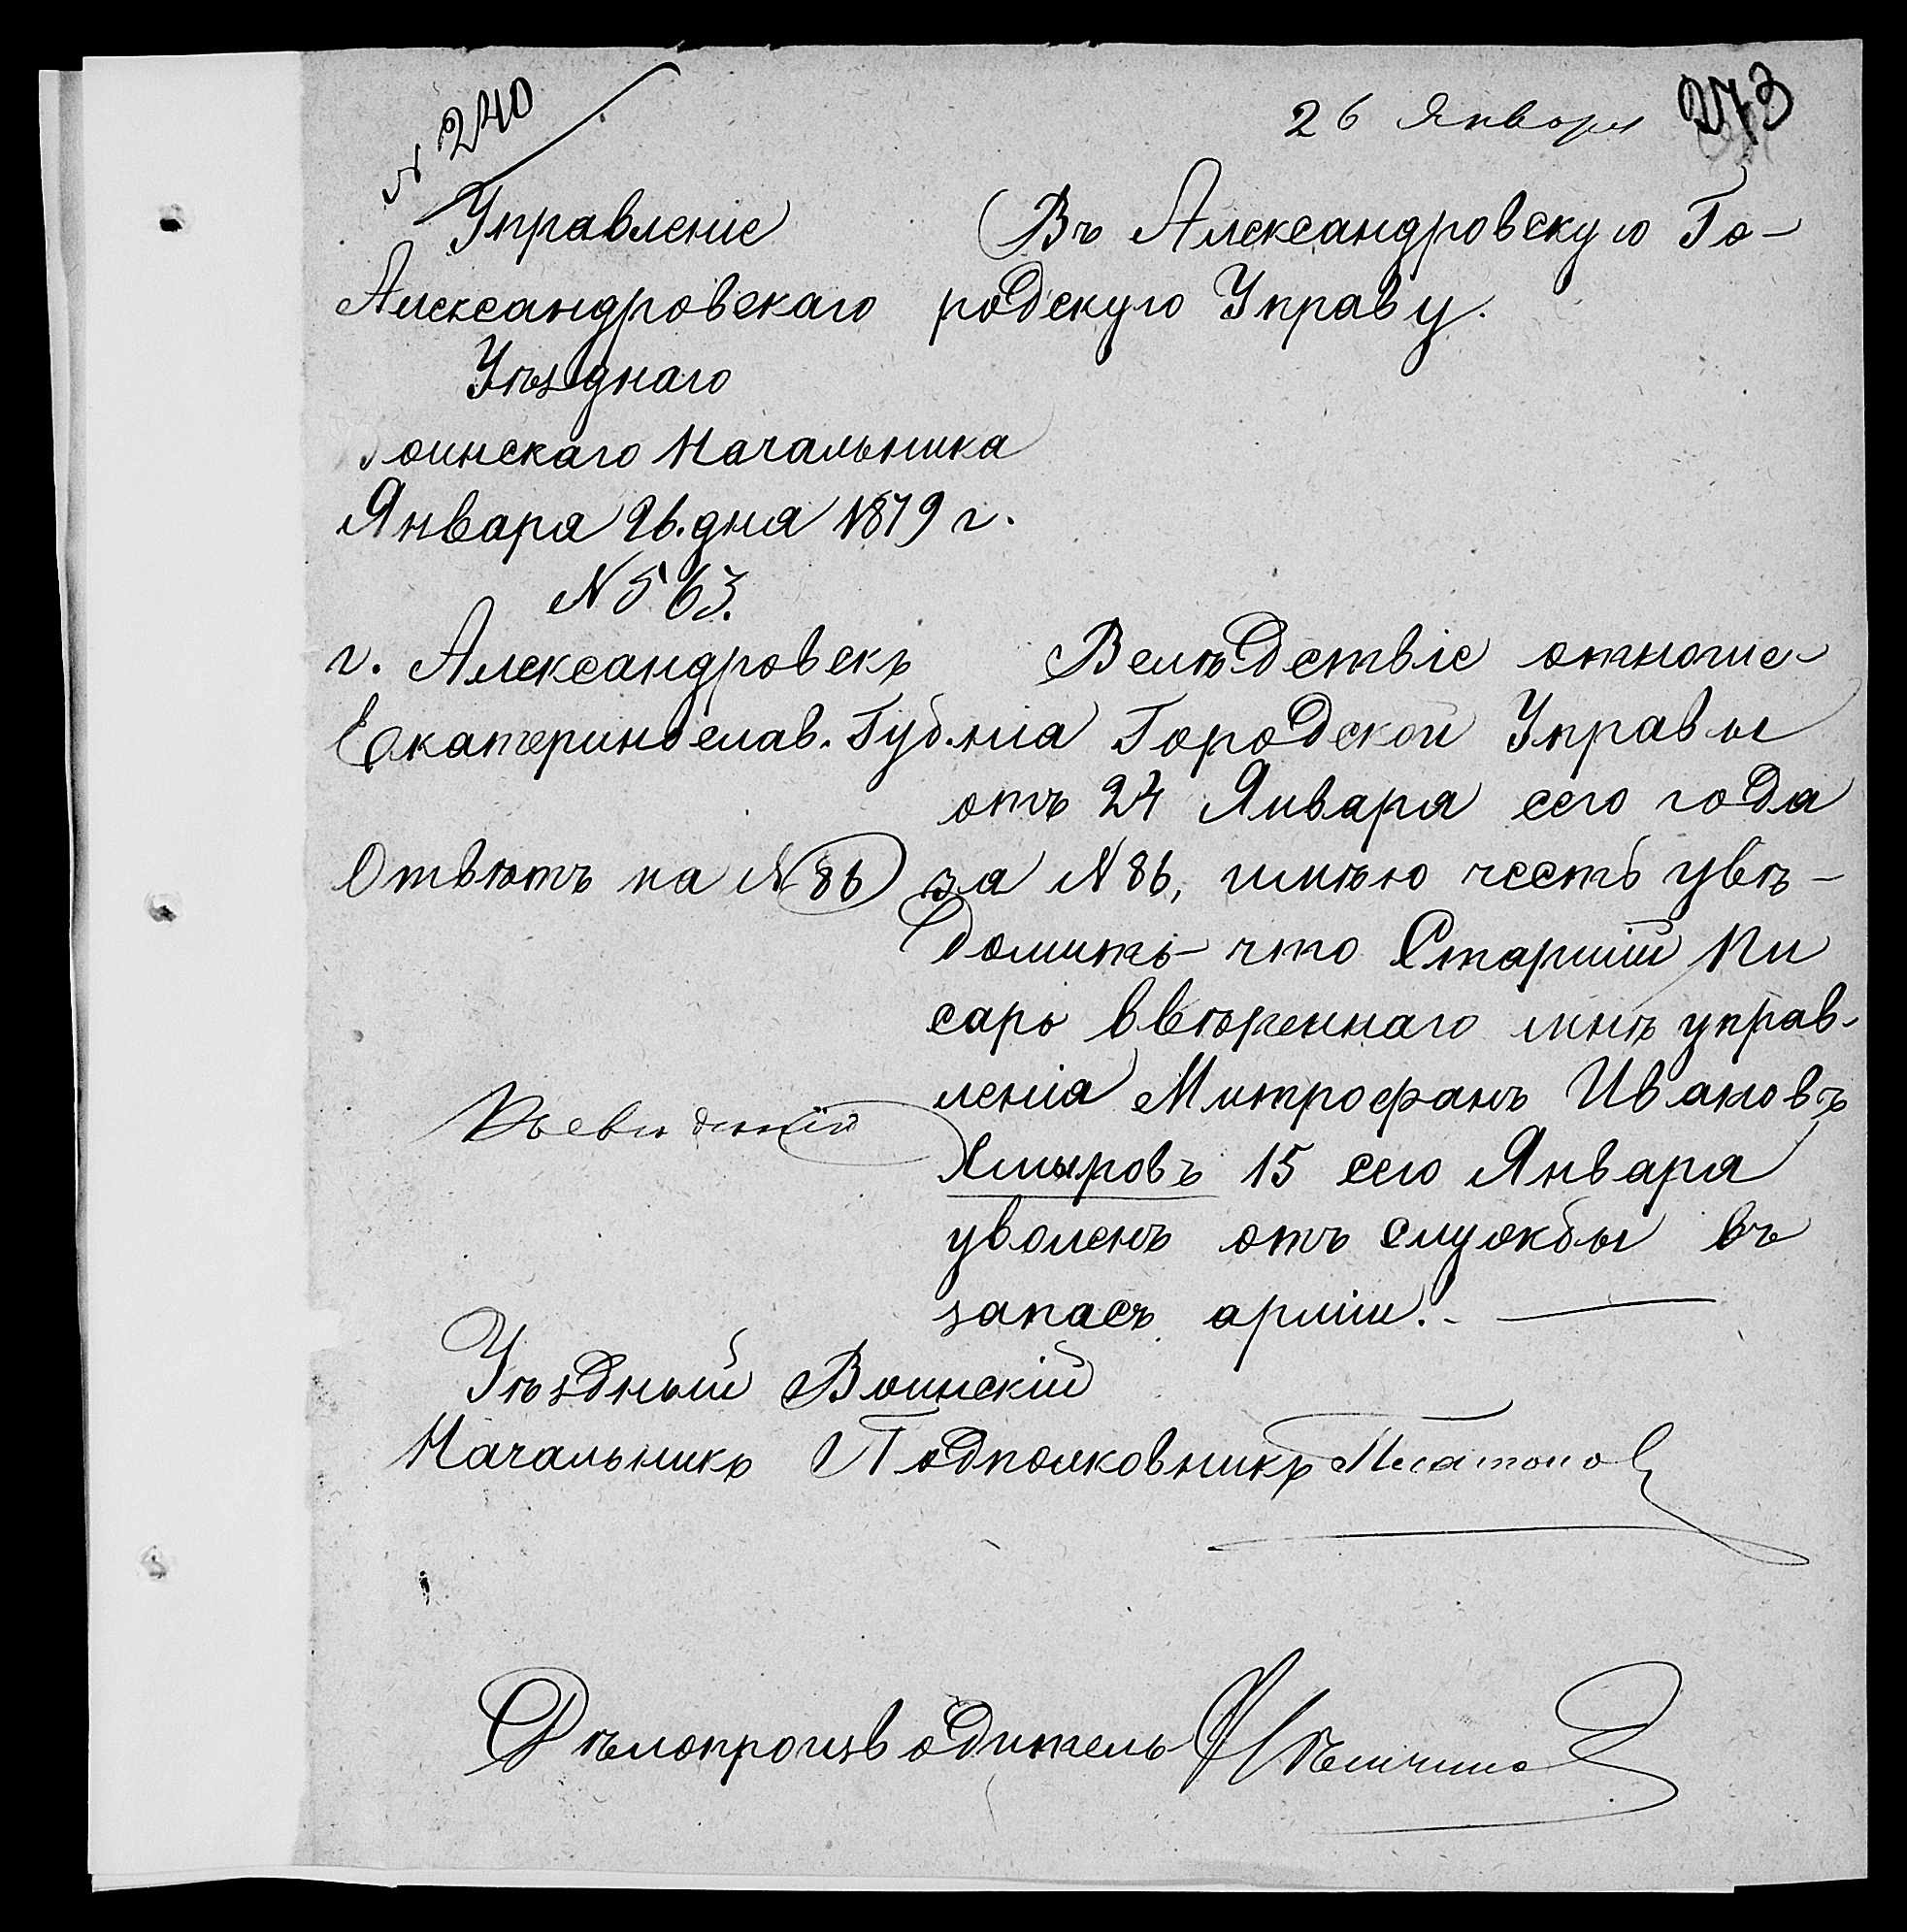 № 240
26 Января
273
Управленіе
Александровскаго
Уѣзднаго
Воинскаго Начальника
Января 26 дня 1879 г.
N 563.
г. Александровскъ
Екатеринослав. Губ.
Отвѣтъ на N 86
Въ Александровскую Го-
родскую Управу.
Вслѣдствіе отноше-
нія Городской Управы
отъ 24 Января сего года
за N 86, имѣю честь увѣ-
домить что Старшій Пи
сарь ввѣреннаго мнѣ управ-
ленія Митрофанъ Ивановъ
Хмыровъ 15 сего Января
уволенъ отъ службы въ
запасъ арміи.
Уѣздный Воинскій
Начальникъ Подполковникъ Платонов
Дѣлопроизводитель